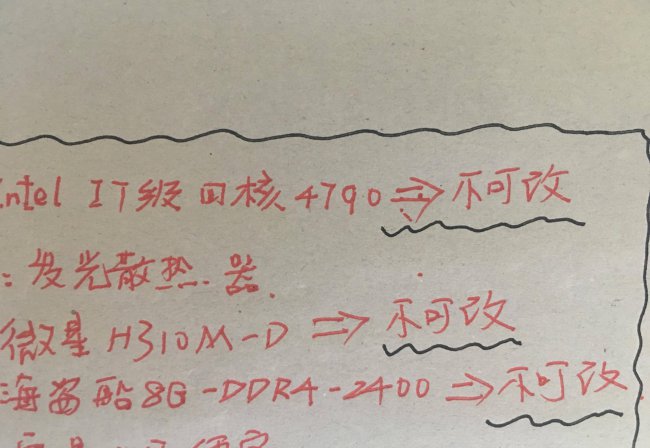 Intel I7级四核4790⇒不可改
:发光散热器.
微星H310M-D⇒不可改
海盗船8G-DDR4-2400⇒不可改